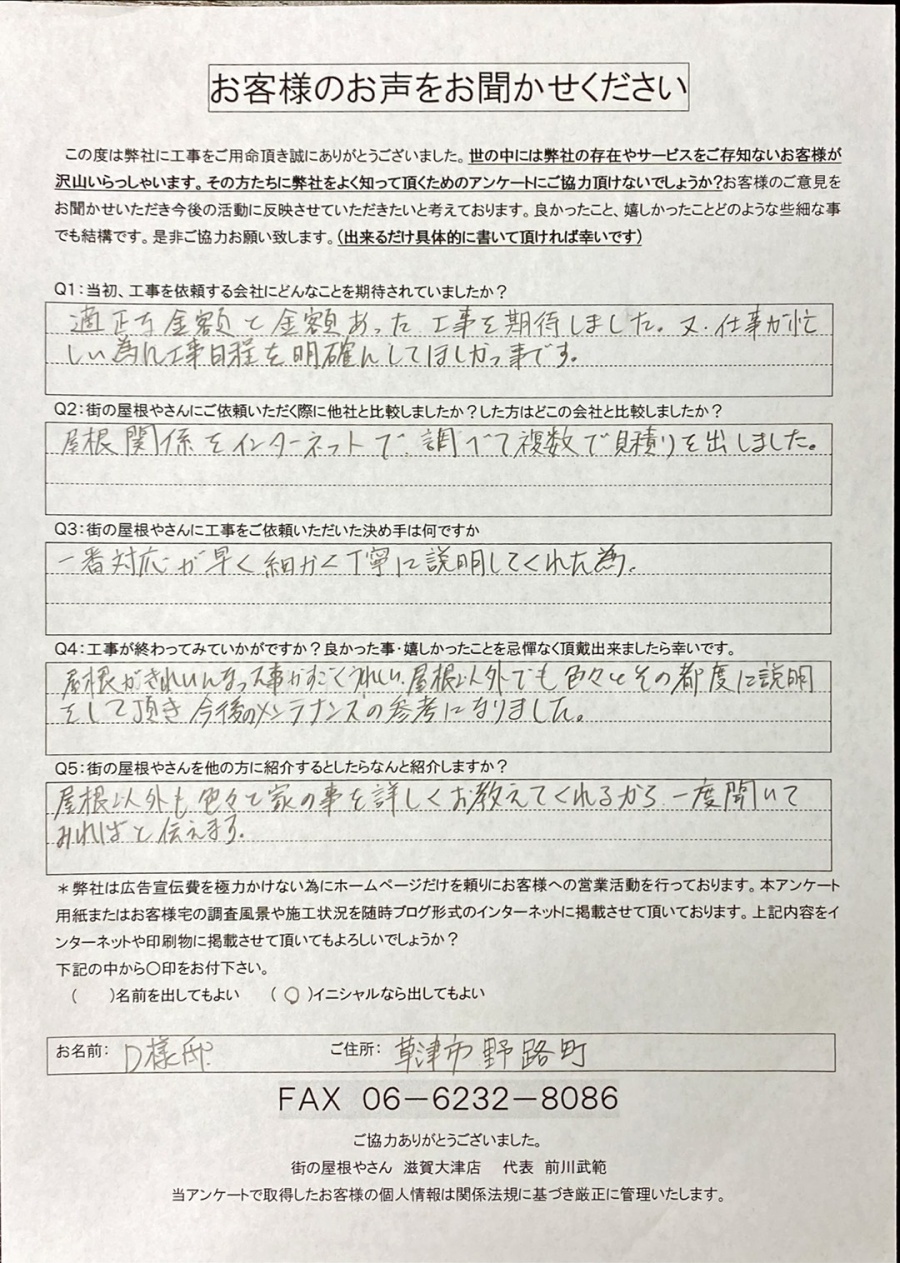 お客様のお声をお聞かせください
この度は弊社に工事をご用命頂き誠にありがとうございました。世の中には弊社の存在やサービスをご存知ないお客様が
沢山いらっしゃいます。その方たちに弊社をよく知って頂くためのアンケートにご協力頂けないでしょうか?お客様のご意見を
お聞かせいただき今後の活動に反映させていただきたいと考えております。良かったこと、嬉しかったことどのような些細な事
でも結構です。是非ご協力お願い致します。(出来るだけ具体的に書いて頂ければ幸いです)
Q1:当初、工事を依頼する会社にどんなことを期待されていましたか?
適正な金額と金額あった工事を期待しました。又、仕事が忙
しい為に工事日程を明確にしてほしかっ事です。
Q2:街の屋根やさんにご依頼いただく際に他社と比較しましたか?した方はどこの会社と比較しましたか?
屋根関係をインターネットで調べて複数で見積りを出しました。
Q3:街の屋根やさんに工事をご依頼いただいた決め手は何ですか
一番対応が早く細かく丁寧に説明してくれた為。
Q4:工事が終わってみていかがですか?良かった事・嬉しかったことを忌憚なく頂戴出来ましたら幸いです。
屋根がきれいになった事がすごくうれしい、屋根以外でも色々とその都度に説明
をして頂き今後のメンテナンスの参考になりました。
Q5:街の屋根やさんを他の方に紹介するとしたらなんと紹介しますか?
屋根以外も色々と家の事を詳しくお教えてくれるから一度聞いて
みればと伝えます。
*弊社は広告宣伝費を極力かけない為にホームページだけを頼りにお客様への営業活動を行っております。本アンケート
用紙またはお客様宅の調査風景や施工状況を随時ブログ形式のインターネットに掲載させて頂いております。上記内容をイ
ンターネットや印刷物に掲載させて頂いてもよろしいでしょうか?
下記の中から〇印をお付下さい。
( )名前を出してもよい (〇)イニシャルなら出してもよい
お名前: D様邸 ご住所: 草津市野路町
FAX 06-6232-8086
ご協力ありがとうございました。
街の屋根やさん 滋賀大津店 代表 前川武範
当アンケートで取得したお客様の個人情報は関係法規に基づき厳正に管理いたします。